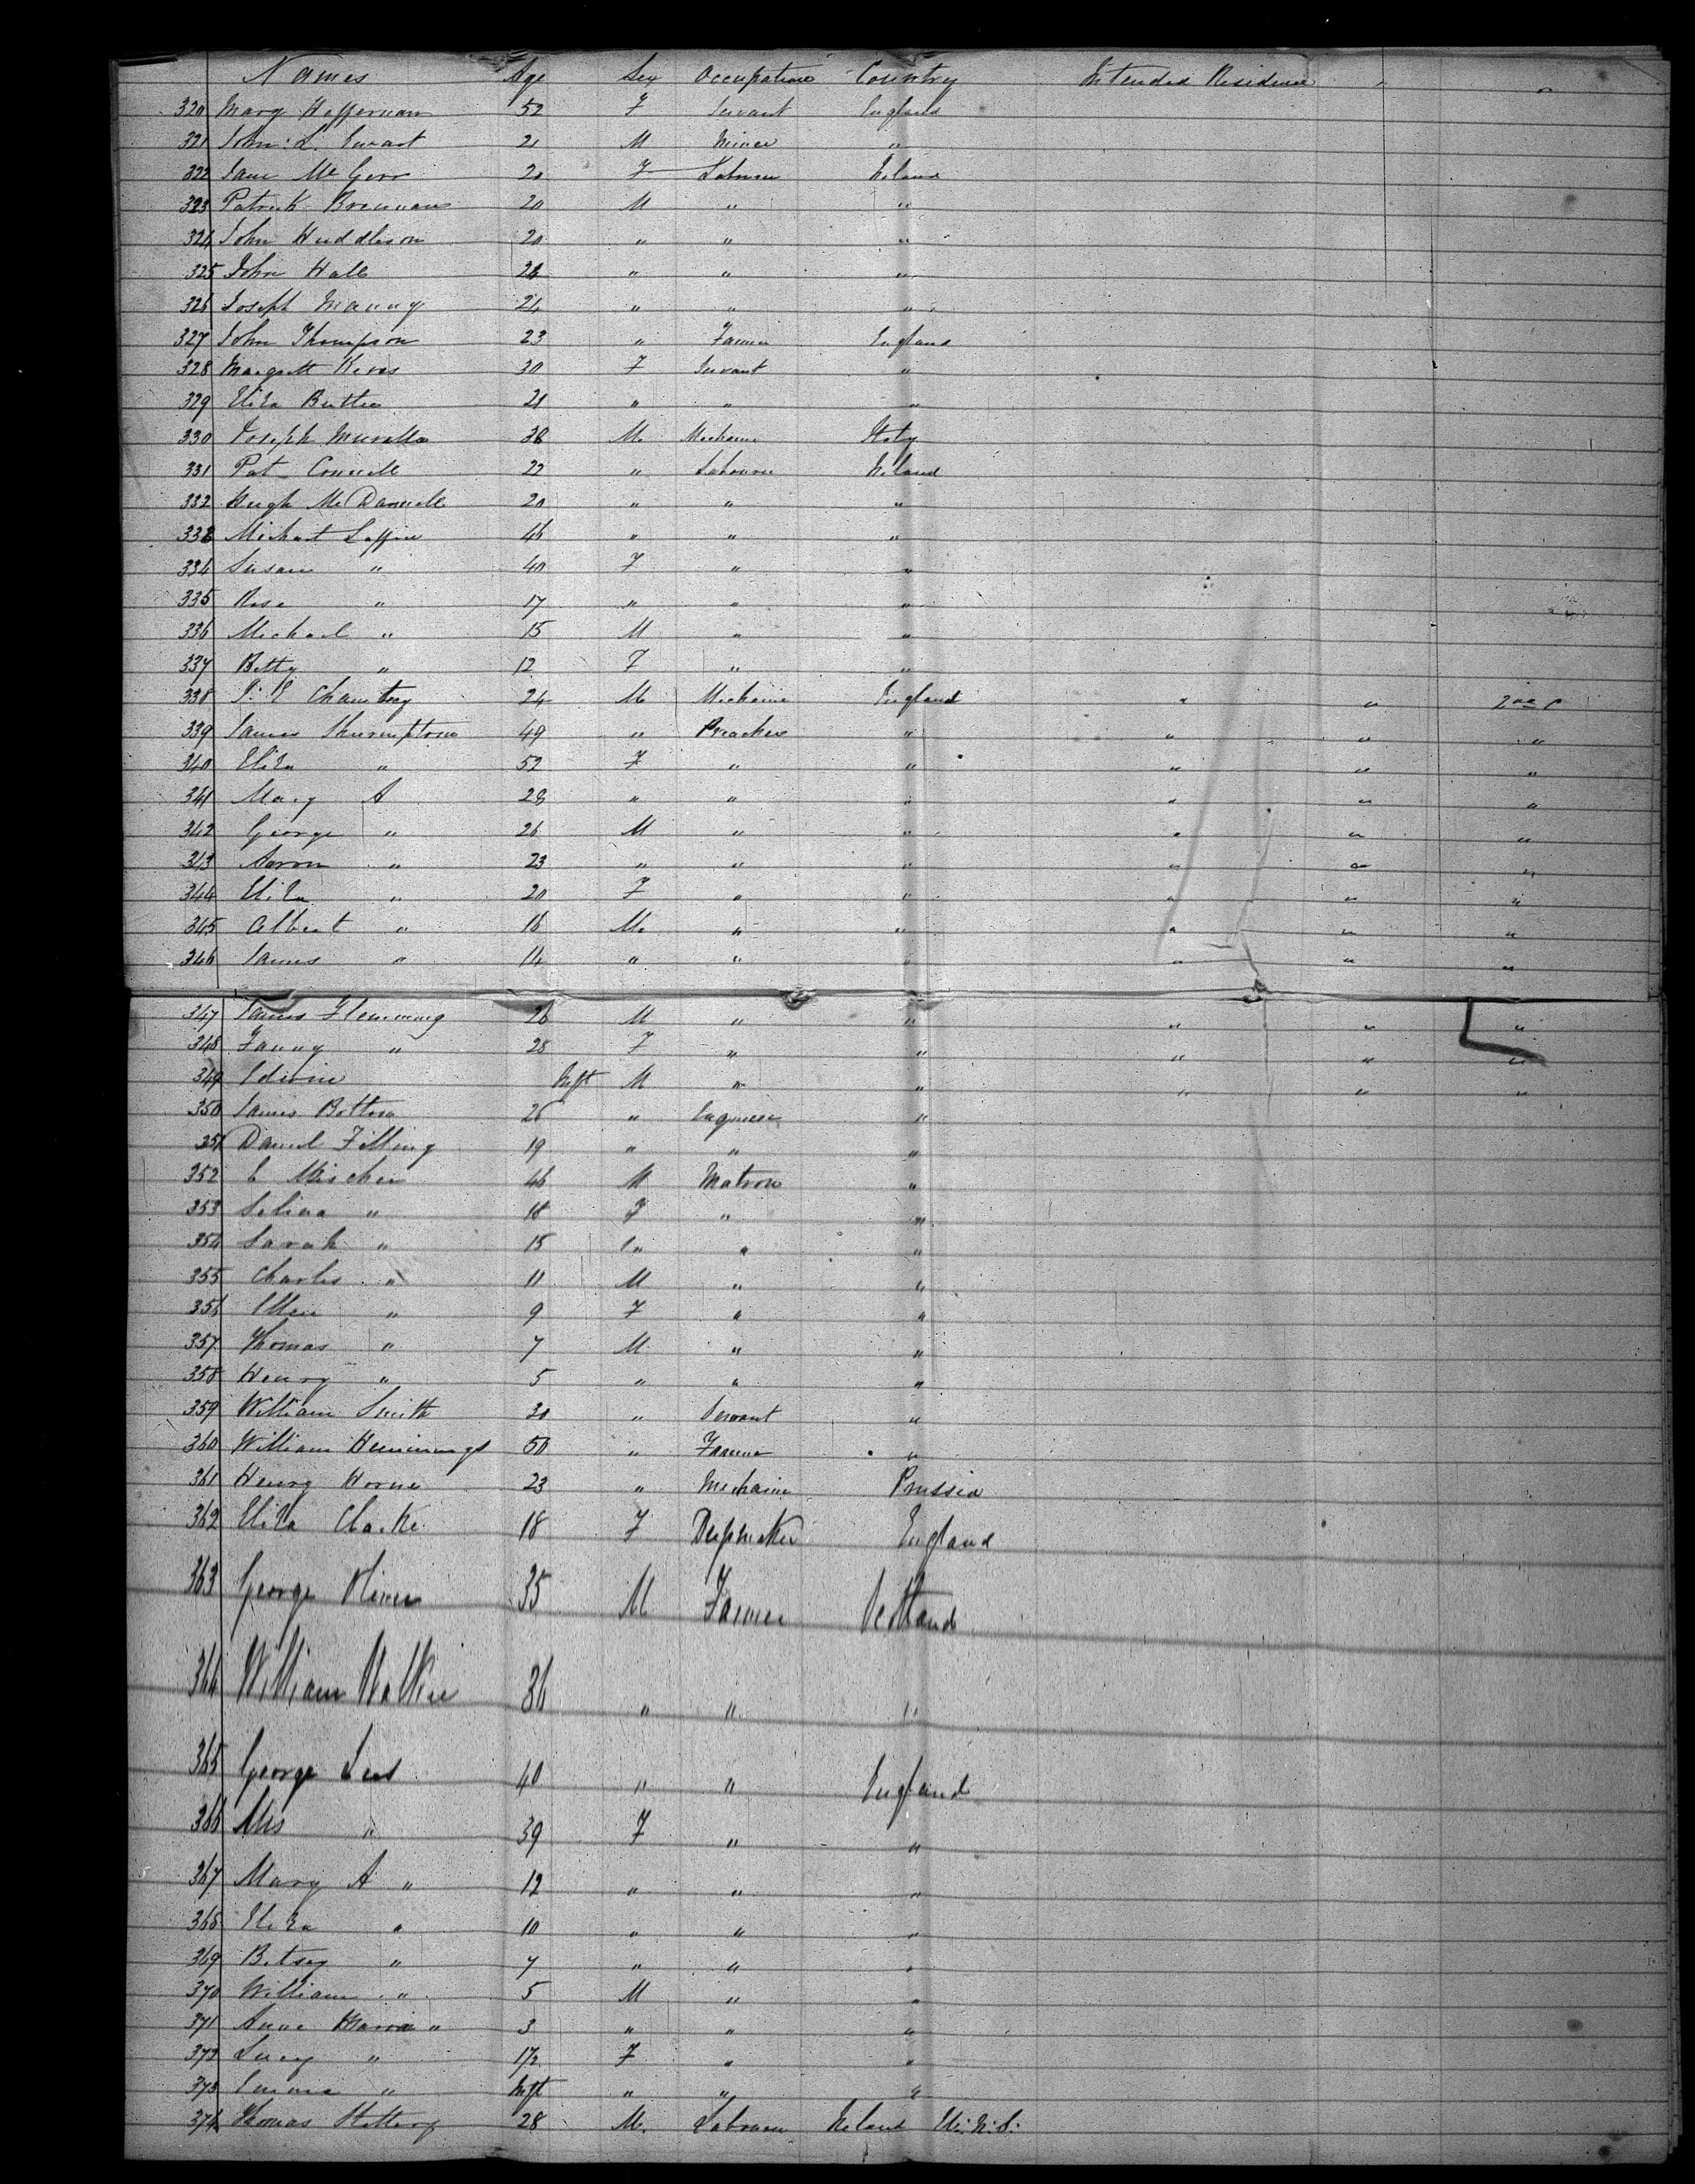 Names Age Sex Occupation Country Intended Residence "
320 Mary Heffernan 52 F Servant England
321 John L. Ewart 21 M Miner "
322 Jane McGerr 20 F Labourer Ireland
323 Patrick Brennan 20 M " "
324 John Huddleson 20 " " "
325 John Hall 24 " " "
326 Joseph Manny 24 " " "
327 John Thompson 23 " Farmer England
328 Margrett 30 F Servant "
329 Eliza Butler 21 " " "
330 Joseph 38 M Mechanic Italy
331 Pat Connell 22 " Labourer Ireland
332 Hugh McDannell 20 " " "
333 Michael Laffin 46 " " "
334 Susan " 40 F " "
335 Rose " 17 " " "
336 Michael " 15 M " "
337 Betty " 12 F " "
338 24 M Mechanic England " " 2nd C
339 James Shrimpton 49 " Preacher " " " "
340 Eliza " 52 F " " " " "
341 Mary A 28 " " " " " "
342 George " 26 M " " " " "
343 Aaron " 23 " " " " " "
344 Eliza " 20 F " " " " "
345 Albert " 16 M " " " " "
346 James " 14 " " " " " "
347 James Flemming 26 M " " " " "
348 Fanny " 28 F " " " " "
349 Edwin Inft M " " " " "
350 James Bottom 26 " Engineer "
351 Daniel Filling 19 " " "
352 E 46 M Matron "
353 Selina " 18 F " "
354 Sarah " 15 " " "
355 Charles " 11 M " "
356 Ellen " 9 F " "
357 Thomas " 7 M " "
358 Henry " 5 " " "
359 William Smith 30 " Servant "
360 William Hemmings 50 " Farmer "
361 Henry Horne 23 " Mechanic Prussia
362 Eliza Clarke 18 F Dressmaker England
363 George Oliver 35 M Farmer Scotland
364 William Walker 36 " " "
365 George Lees 40 " " England
366 Mrs " 39 F " "
367 Mary A " 12 " " "
368 Eliza " 10 " " "
369 Betsey " 7 " " "
370 William " 5 M " "
371 Anne Maria " 3 " " "
372 Lucy " 1½ F " "
373 Emma " Inft " " "
374 Thomas Slattery 28 M. Labourer Ireland